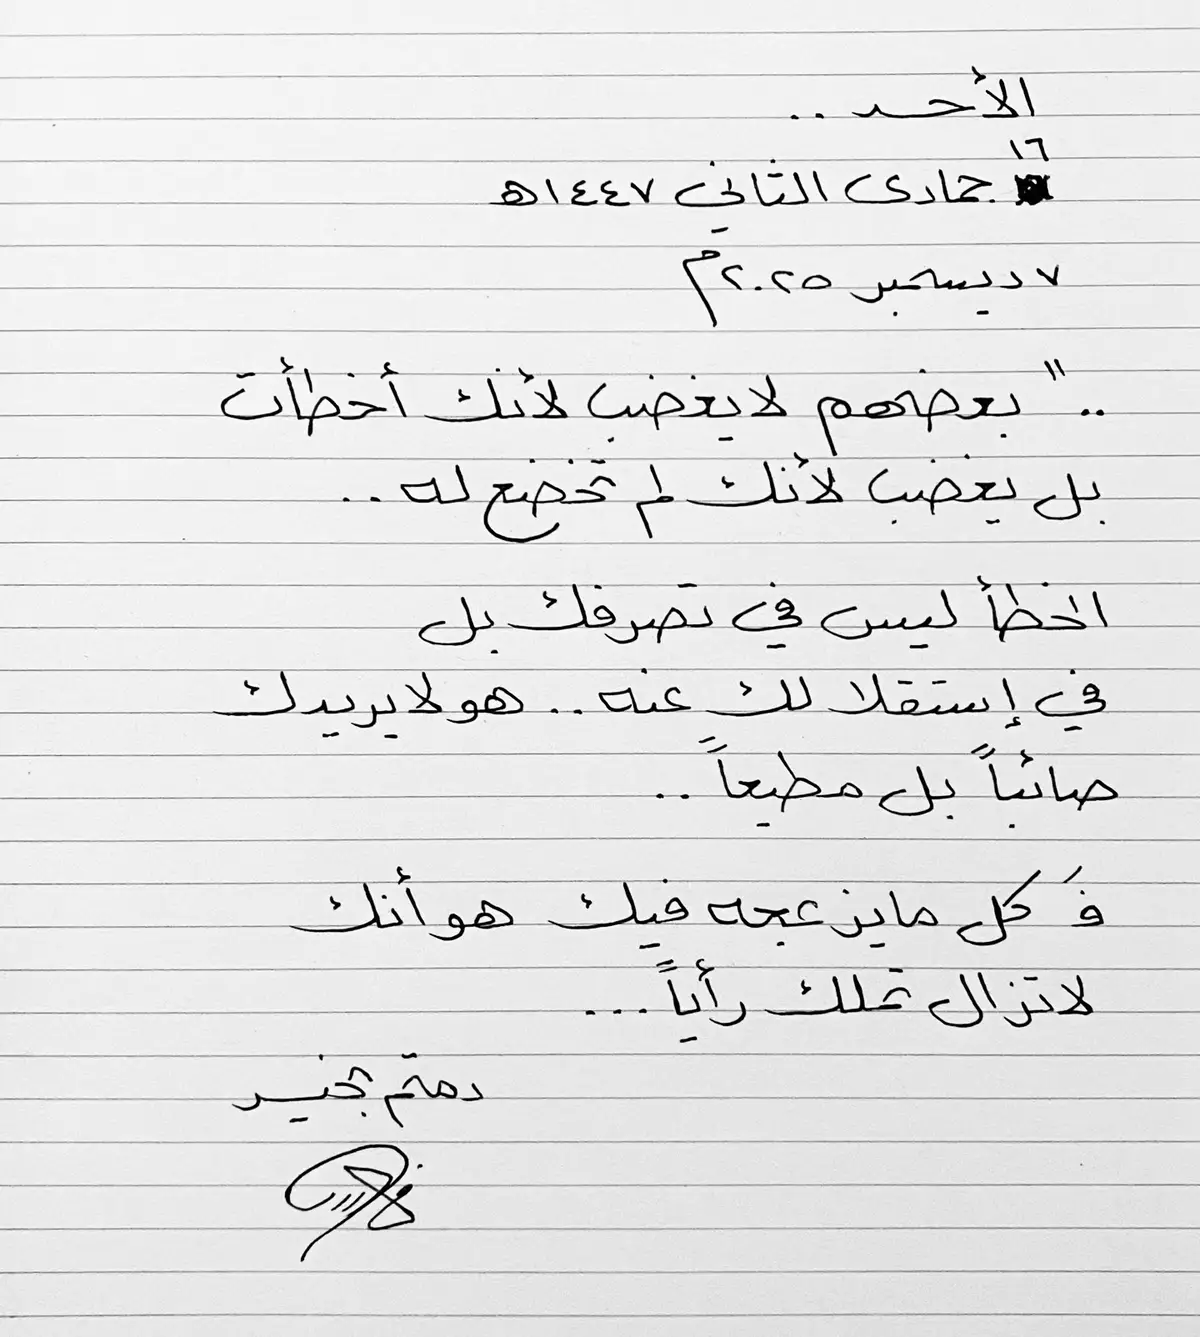 الأحد ..
١٦
جمادى الثاني ١٤٤٧هـ
٧ ديسمبر ٢٠٢٥م
.. " بعضهم لا يغضب لأنك أخطأت
بل يغضب لأنك لم تخضع له ..
الخطأ ليس في تصرفك بل
في إستقلالك عنه .. هو لا يريدك
صائباً بل مطيعاً ..
فَكل ما يزعجه فيك هو أنك
لا تزال تملك رأياً ...
دمتم بخير